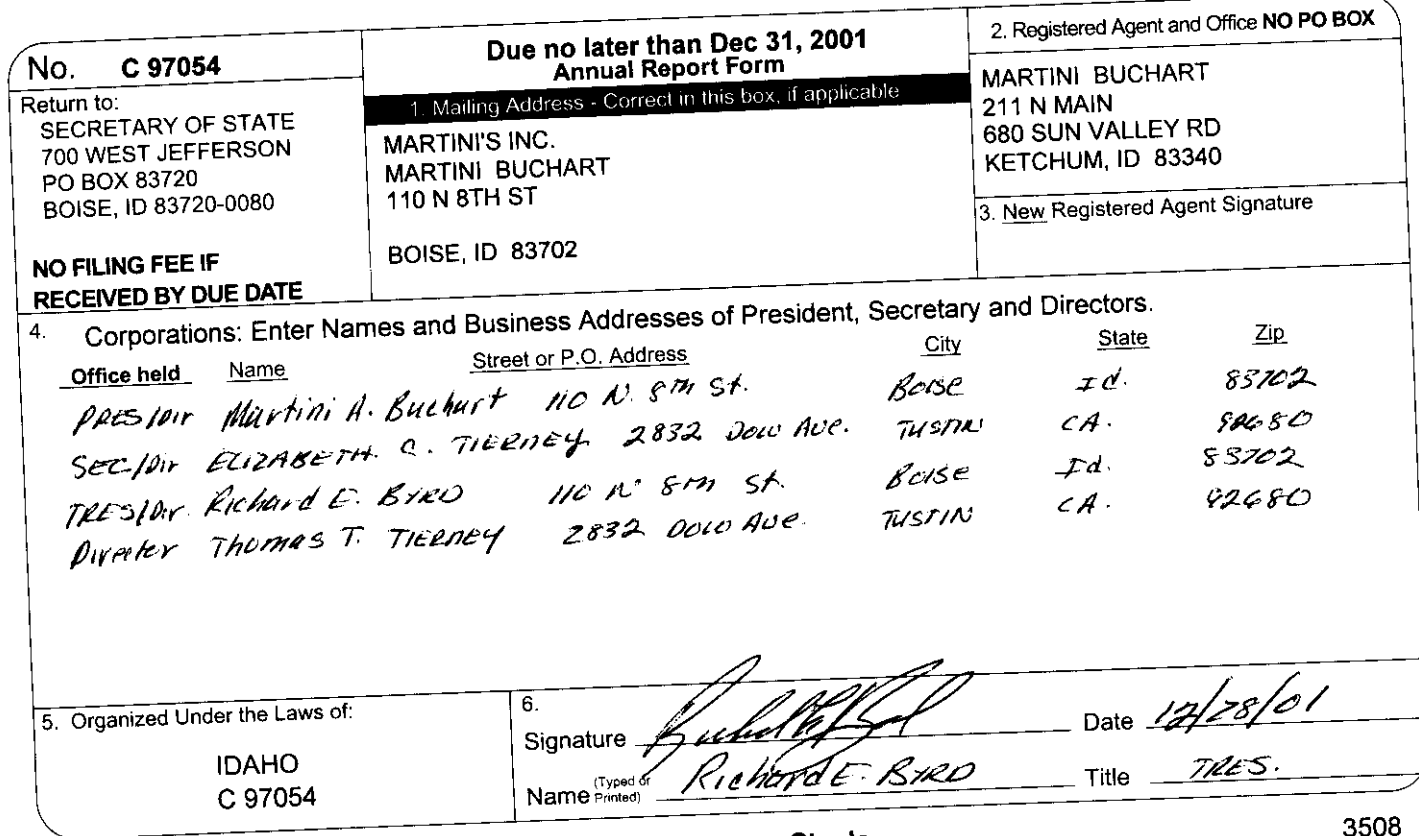 No. C 97054
Return to:
SECRETARY OF STATE
700 WEST JEFFERSON
PO BOX 83720
BOISE, ID 83720-0080
NO FILING FEE IF
RECEIVED BY DUE DATE
Due no later than Dec 31, 2001
Annual Report Form
1. Mailing Address - Correct in this box, if applicable
MARTINI'S INC.
MARTINI BUCHART
110 N 8TH ST
BOISE, ID 83702
2. Registered Agent and Office NO PO BOX
MARTINI BUCHART
211 N MAIN
680 SUN VALLEY RD
KETCHUM, ID 83340
3. New Registered Agent Signature
4. Corporations: Enter Names and Business Addresses of President, Secretary and Directors.
Office held Name Street or P.O. Address City State Zip
PRES/Dir Martini A. Buchart 110 N. 8TH St. Boise Id. 83702
SEC/Dir ELIZABETH TIERNEY 2832 Dow Ave. TUSTIN CA.
TRES/Dir. Richard E. BYRD 110 N. 8TH St. Boise Id. 83702
Director Thomas T. TIERNEY 2832 DOW Ave. TUSTIN CA. 92680
5. Organized Under the Laws of:
IDAHO
C 97054
6.
Signature Date 12/28/01
Name (Typed or Printed) Richard E. BYRD Title TRES.
3508